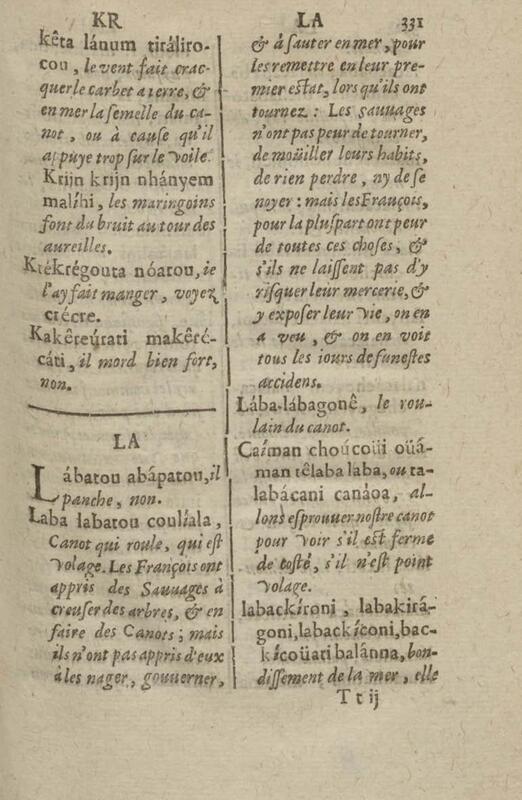 KR
LA 331
kêta lánum tiráliro-
cou, le vent fait crac-
quer le carbet a terre, &
en mer la semelle du ca-
not, ou à cause qu'il
appuye trop sur le voile.
Krijn krijn nhányem
malíhi, les maringoins
font du bruit autour des
aureilles.
Ktékrégouta nóatou, ie
l'ay fait manger, voyez
crécre.
Kakêreúrati makêré-
cáti, il mord bien fort,
non.
LA
Lábatou abápatou, il
panche, non.
Laba labatou coulíala,
Canot qui roule, qui est
volage. Les François ont
appris des Sauuages à
creuser des arbres, & en
faire des Canots; mais
ils n'ont pas appris d'eux
à les nager, gouuerner,
& à sauter en mer, pour
les remettre en leur pre-
mier estat, lors qu'ils ont
tournez: Les sauuages
n'ont pas peur de tourner,
de moüiller leurs habits,
de rien perdre, ny de se
noyer: mais les François,
pour la pluspart ont peur
de toutes ces choses, &
s'ils ne laissent pas d'y
risquer leur mercerie, &
y exposer leur vie, on en
a veu, & on en voit
tous les iours de funestes
accidens.
Lába-lábagonê, le rou-
lain du canot.
Caíman choúcoüi oüá-
man têlaba laba, ou ta-
labácani canáoa, al-
lons esprouuer nostre canot
pour voir s'il est ferme
de costé, s'il n'est point
volage.
labackíroni, labakirá-
goni, labackíconi, bac-
kícoüati balánna, bon-
dissement de la mer, elle
Tt ij